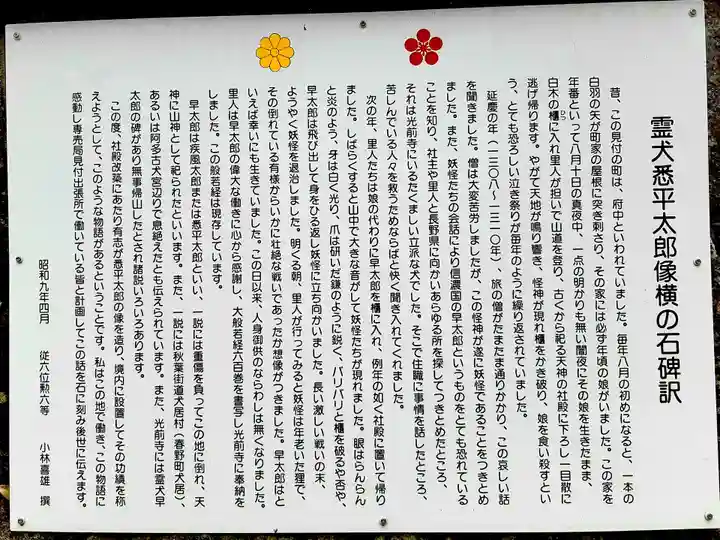 霊犬悉平太郎像横の石碑訳
昔、この見付の町は、府中といわれていました。毎年八月の初めになると、一本の
白羽の矢が町家の屋根に突き刺さり、その家には必ず年頃の娘がいました。この家を
年番といって八月十日の真夜中、一点の明かりも無い闇夜にその娘を生きたまま、
白木の櫃に入れ里人が担いで山道を登り、古くから祀る天神の社殿に下ろし一目散に
ひつ
逃げ帰ります。やがて天地が鳴り響き、怪神が現れ櫃をかき破り、娘を食い殺すとい
う、とても恐ろしい泣き祭りが毎年のように繰り返されていました。
延慶の年(一三〇八~三一〇年)、旅の僧がたまたま通りかかり、この哀しい話
を聞きました。僧は大変苦労しましたが、この怪神が遂に妖怪であることをつきとめ
ました。また、妖怪たちの会話により信濃国の早太郎というものをとても恐れている
ことを知り、社主や里人と長野県に向かいあらゆる所を探してつきとめたところ、
それは光前寺にいるたくましい立派な犬でした。そこで住職に事情を話したところ、
苦しんでいる人々を救うためならばと快く聞き入れてくれました。
次の年、里人たちは娘の代わりに早太郎を櫃に入れ、例年の如く社殿に置いて帰り
ました。しばらくすると山中で大きな音がして妖怪たちが現れました。眼はらんらん
と炎のよう、牙は白く光り、爪は研いだ鎌のように鋭く、バリバリと櫃を破るや否や、
早太郎は飛び出して身をひる返し妖怪に立ち向かいました。長い激しい戦いの末、
ようやく妖怪を退治しました。明くる朝、里人が行ってみると妖怪は年老いた狸で、
その倒れている有様からいかに壮絶な戦いであったか想像がつきました。早太郎はと
いえば幸いにも生きていました。この日以来、人身御供のならわしは無くなりました。
里人は早太郎の偉大な働きに心から感謝し、大般若経六百巻を書写し光前寺に奉納を
しました。この般若経は現存しています。
早太郎は疾風太郎または悉平太郎といい、一説には重傷を負ってこの地に倒れ、天
神に山神として祀られたといいます。また、一説には秋葉街道犬居村(春野町犬居)、
あるいは阿多古犬宮辺りで息絶えたとも伝えられています。また、光前寺には霊犬早
太郎の碑があり無事帰山したとされ諸説いろいろあります。
この度、社殿改築にあたり有志が悉平太郎の像を造り、境内に設置してその功績を称
えようとして、このような物語があるということです。私はこの地で働き、この物語に
感動し専売局見付出張所で働いている皆と計画してこの話を石に刻み後世に伝えます。
昭和九年四月 従六位勲六等 小林喜雄 撰